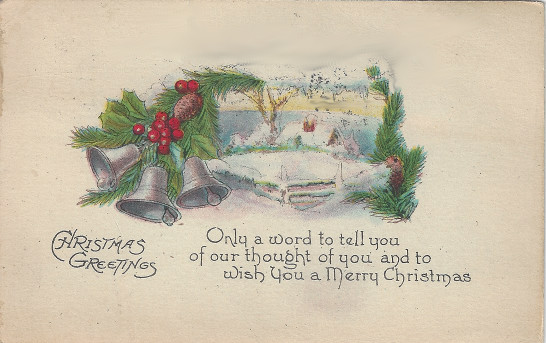 Christmas
Greetings
Only a word to tell you
of our thought of you and to
wish you a Merry Christmas